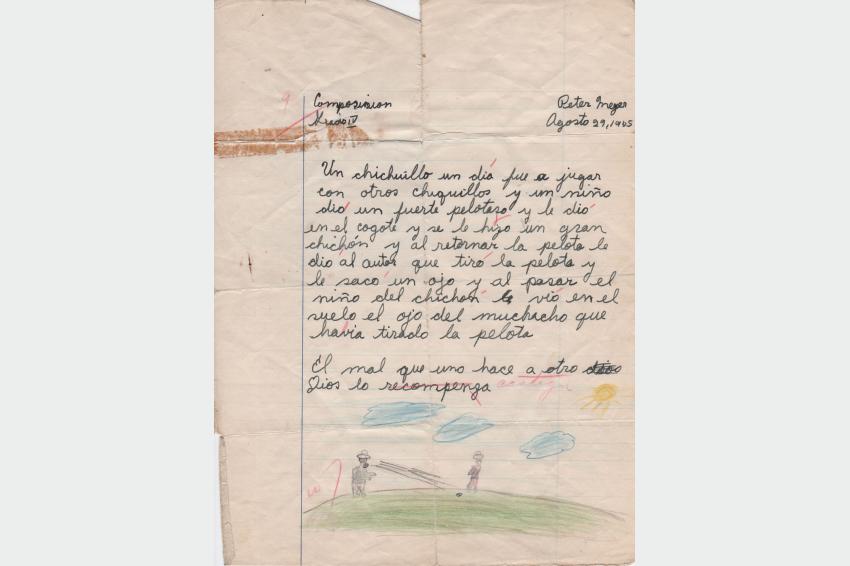 9
Composision
Grado IV
Peter Meyer
Agosto 29, 1945
Un chichuillo un día fue a jugar
con otros chiquillos y un niño
dió un fuerte pelotaso y le dió
en el cogote y se le hizo un gran
chichón y al retornar la pelota le
dió al autor que tiró la pelota y
le sacó un ojo y al pasar el
niño del chichón le vió en el
suelo el ojo del muchacho que
havia tirado la pelota
El mal que uno hace a otro dios
Dios lo recompenza castiga
10